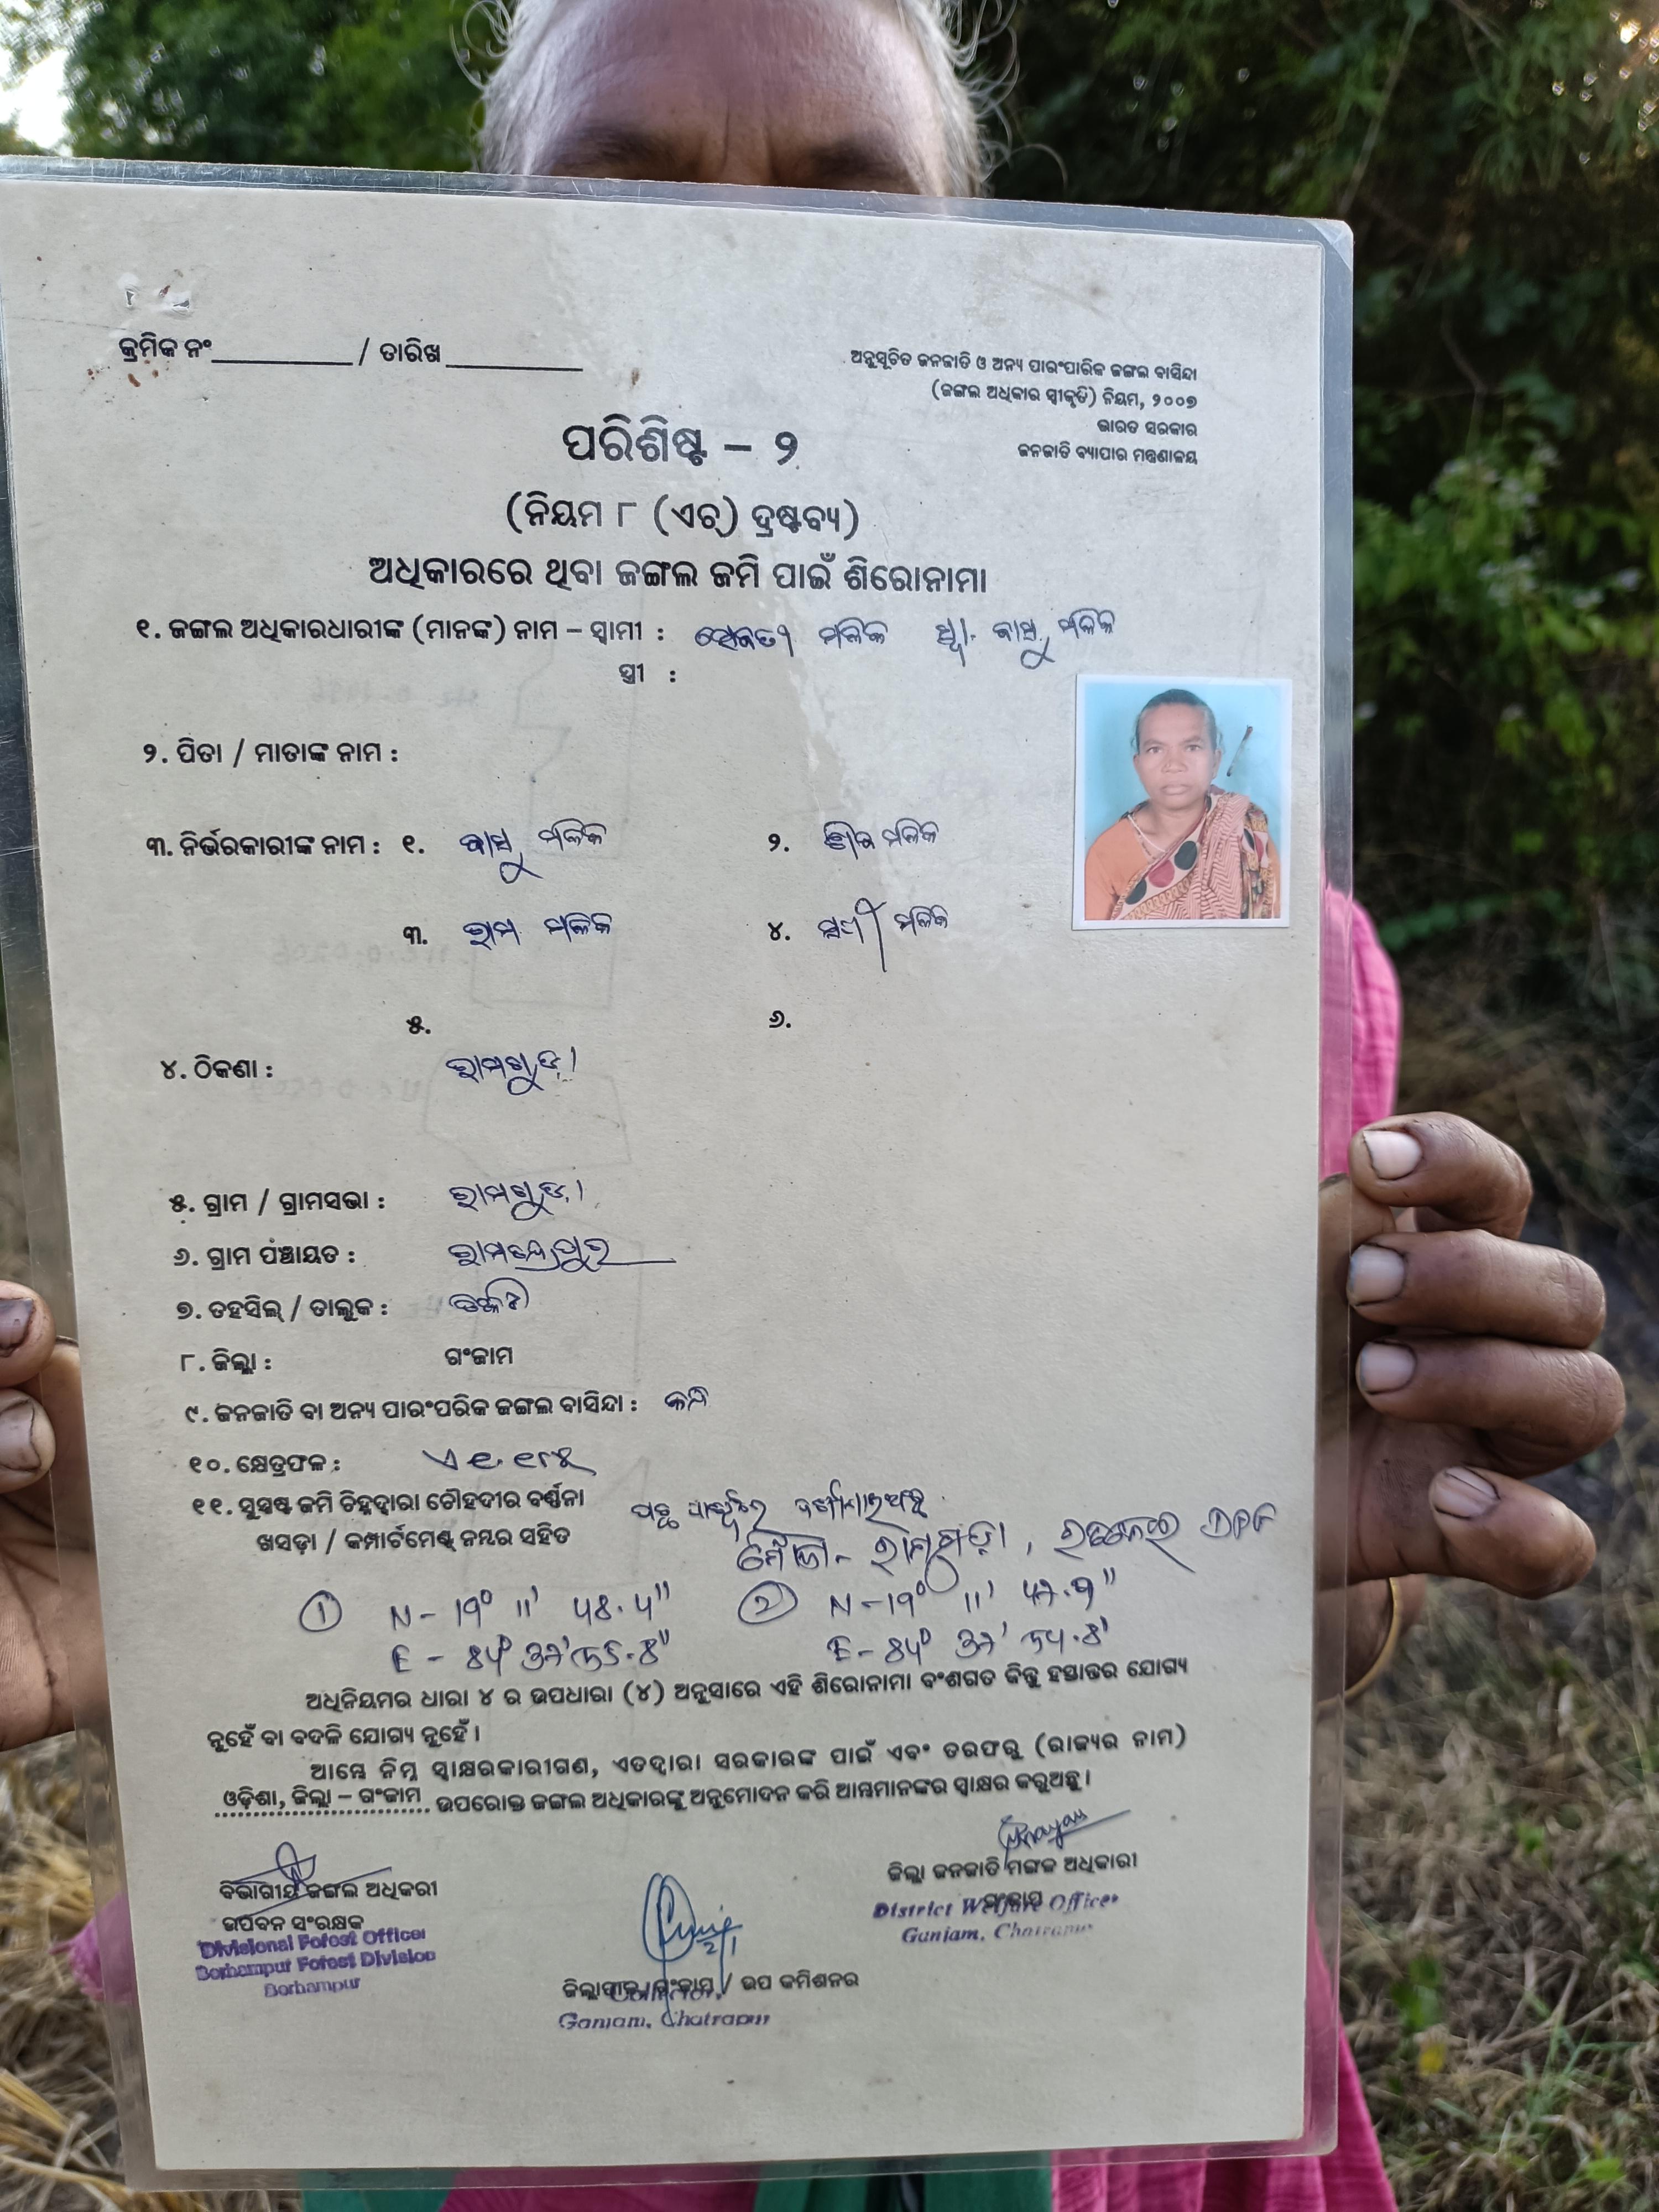 କ୍ରମିକ ନଂ / ତାରିଖ
ଅନୁସୂଚିତ ଜନଜାତି ଓ ଅନ୍ୟ ପାରଂପାରିକ ଜଙ୍ଗଲ ବାସିନ୍ଦା
(ଜଙ୍ଗଲ ଅଧିକାର ସ୍ୱୀକୃତି) ନିୟମ, ୨୦୦୭
ଭାରତ ସରକାର
ଜନଜାତି ବ୍ୟାପାର ମନ୍ତ୍ରଣାଳୟ
ପରିଶିଷ୍ଟ – ୨
(ନିୟମ ୮ (ଏଚ୍) ଦ୍ରଷ୍ଟବ୍ୟ)
ଅଧିକାରରେ ଥିବା ଜଙ୍ଗଲ ଜମି ପାଇଁ ଶିରୋନାମା
୧. ଜଙ୍ଗଲ ଅଧିକାରଧାରୀଙ୍କ (ମାନଙ୍କ) ନାମ – ସ୍ୱାମୀ : ମଳିକ ବାସୁ ମଳିକ
ସ୍ତ୍ରୀ :
୨. ପିତା / ମାତାଙ୍କ ନାମ :
୩. ନିର୍ଭରକାରୀଙ୍କ ନାମ : ୧. ବାସୁ ମଳିକ ୨. ମଳିକ
୩. ରାମ ମଳିକ ୪. ମଳିକ
୫. ୬.
୪. ଠିକଣା : ରାମଗୁଡ଼ା
୫. ଗ୍ରାମ / ଗ୍ରାମସଭା : ରାମଗୁଡ଼ା
୬. ଗ୍ରାମ ପଞ୍ଚାୟତ : ରାମଚନ୍ଦ୍ରପୁର
୭. ତହସିଲ୍ / ତାଲୁକ :
୮. ଜିଲ୍ଲା : ଗଂଜାମ
୯. ଜନଜାତି ବା ଅନ୍ୟ ପାରଂପରିକ ଜଙ୍ଗଲ ବାସିନ୍ଦା : କନ୍ଧ
୧୦. କ୍ଷେତ୍ରଫଳ :
୧୧. ସୁସ୍ପଷ୍ଟ ଜମି ଚିହ୍ନଦ୍ୱାରା ଚୌହଦୀର ବର୍ଣ୍ଣନା
ଖସଡ଼ା / କମ୍ପାର୍ଟମେଣ୍ଟ ନମ୍ବର ସହିତ
ମୌଜା -
① N – 19° 11'
② N – 19° 11'
E –
E –
ଅଧିନିୟମର ଧାରା ୪ ର ଉପଧାରା (୪) ଅନୁସାରେ ଏହି ଶିରୋନାମା ବଂଶଗତ କିନ୍ତୁ ହସ୍ତାନ୍ତର ଯୋଗ୍ୟ
ନୁହେଁ ବା ବଦଳି ଯୋଗ୍ୟ ନୁହେଁ ।
ଆମ୍ଭେ ନିମ୍ନ ସ୍ୱାକ୍ଷରକାରୀଗଣ, ଏତଦ୍ୱାରା ସରକାରଙ୍କ ପାଇଁ ଏବଂ ତରଫରୁ (ରାଜ୍ୟର ନାମ)
ଓଡ଼ିଶା, ଜିଲ୍ଲା – ଗଂଜାମ ଉପରୋକ୍ତ ଜଙ୍ଗଲ ଅଧିକାରଙ୍କୁ ଅନୁମୋଦନ କରି ଆମ୍ଭମାନଙ୍କର ସ୍ୱାକ୍ଷର କରୁଅଛୁ ।
ବିଭାଗୀୟ ଜଙ୍ଗଲ ଅଧିକରୀ
ଉପବନ ସଂରକ୍ଷକ
Divisional Forest Officer
Berhampur Forest Division
Berhampur
ଜିଲ୍ଲାପାଳ, ଗଂଜାମ / ଉପ କମିଶନର
Ganjam, Chatrapur
ଜିଲ୍ଲା ଜନଜାତି ମଙ୍ଗଳ ଅଧିକାରୀ
ଗଂଜାମ
District Welfare Officer
Ganjam, Chatrapur